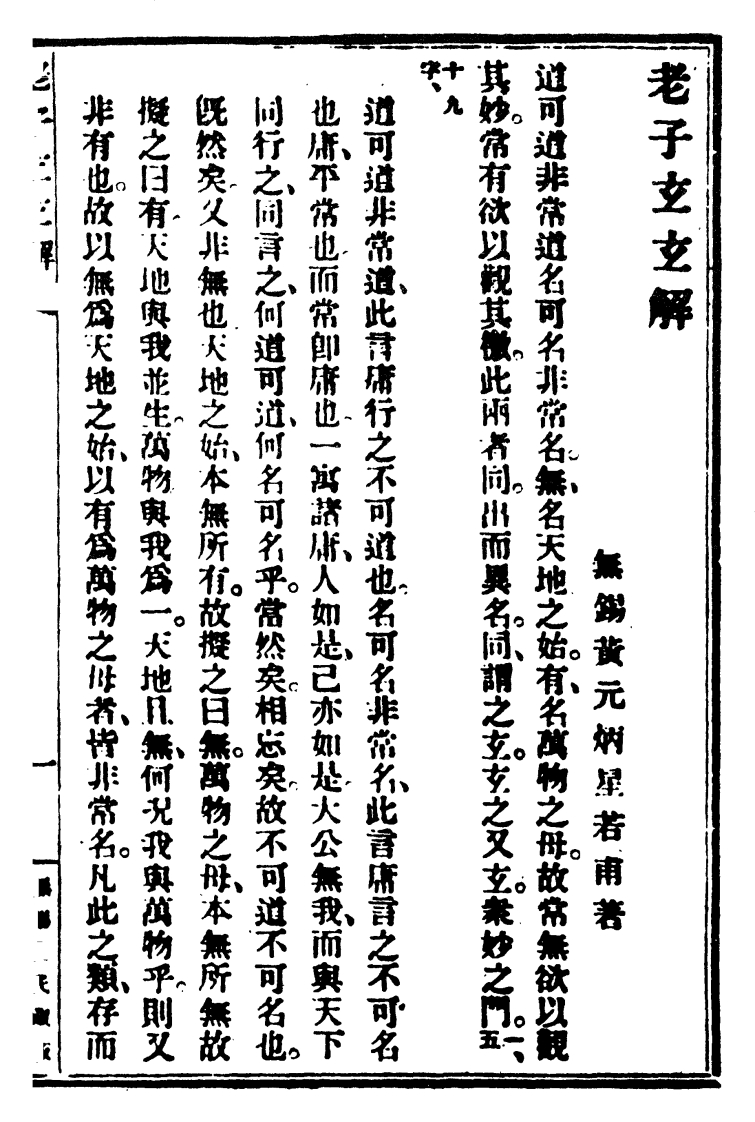 老子玄玄解
無錫黃元炳星若甫著
道可道非常道名可名非常名、無、名天地之始。有、名萬物之母。故常無欲以觀
其妙。常有欲以觀其徼。此兩者同。出而異名。同、謂之玄。玄之又玄。衆妙之門。一、五
十九字、
道可道非常道、此言庸行之不可道也。名可名非常名、此言庸言之不可名
也、庸、平常也、而常卽庸也、一寓諸庸、人如是、己亦如是。大公無我、而與天下
同行之、同言之、何道可道、何名可名乎。當然矣。相忘矣。故不可道不可名也。
旣然矣。又非無也天地之始、本無所有。故擬之曰無。萬物之母、本無所無故
擬之曰有。天地與我並生。萬物與我爲一。天地且無、何況我與萬物乎。則又
非有也。故以無爲天地之始、以有爲萬物之母者、皆非常名。凡此之類、存而
老子玄玄解
一